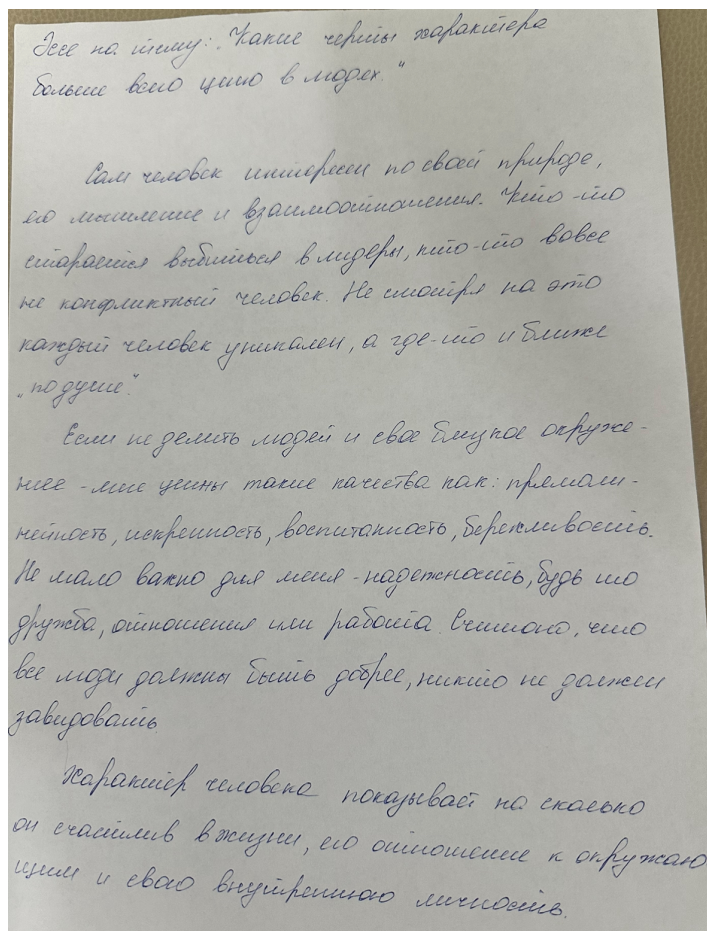 Эссе на тему: „Какие черты характера
больше всего ценю в людях."
Сам человек интересен по своей природе,
его мышление и взаимоотношения. Кто-то
старается выбиться в лидеры, кто-то вовсе
не конфликтный человек. Не смотря на это
каждый человек уникален, а где-то и ближе
„по душе".
Если не делить людей и свое близкое окруже-
ние - мне ценны такие качества как: прямоли-
нейность, искренность, воспитанность, бережливость.
Не мало важно для меня - надежность, будь то
дружба, отношения или работа. Считаю, что
все люди должны быть добрее, никто не должен
завидовать.
Характер человека показывает на сколько
он счастлив в жизни, его отношение к окружаю
щим и свою внутреннюю личность.